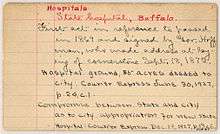 Hospitals
State Hospital, Buffalo.
First act in reference to passed
in 1869 and signed by Gov. Hoff-
man, who made address at lay-
ing of cornerstone Sept. 18, 1872.
Hospital ground, 85 acres deeded to
City. Courier Express June 30, 1927,
p.24, c.1.
Compromise between State and city
as to appropriation for new State
Hospital: Courier Express Dec. 17, 1927,